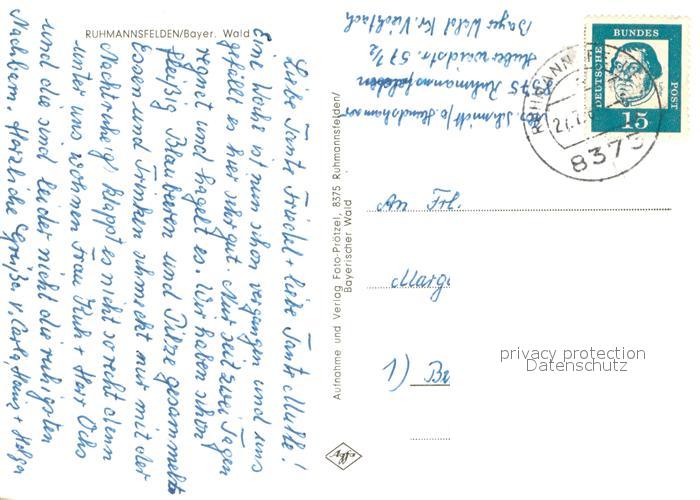 RUHMANNSFELDEN/Bayer. Wald
Liebe Tante Friedel + liebe Tante Mutle!
Eine Woche ist nun schon vergangen und uns
gefällt es hier sehr gut. Nur seit zwei Tagen
regnet und hagelt es. Wir haben schon
fleißig Blaubeeren und Pilze gesammelt
Essen und Trinken schmeckt nur mit der
Nachtruhe klappt es nicht so recht denn
unter uns wohnen Frau Kuh + Herr Ochs
und die sind leider nicht die ruhigsten
Nachbarn. Herzliche Grüße v. Carla, Heinz + Holger
Aufnahme und Verlag Foto-Prötzel, 8375 Ruhmannsfelden/
Bayerischer Wald
Schmidt
8375 Ruhmannsfelden
Huberweidstr. 57 1/2
Bayer Wald Kr. Viechtach
DEUTSCHE
BUNDES
POST
15
8375
An Frl.
Marg
1) Be
privacy protection
Datenschutz